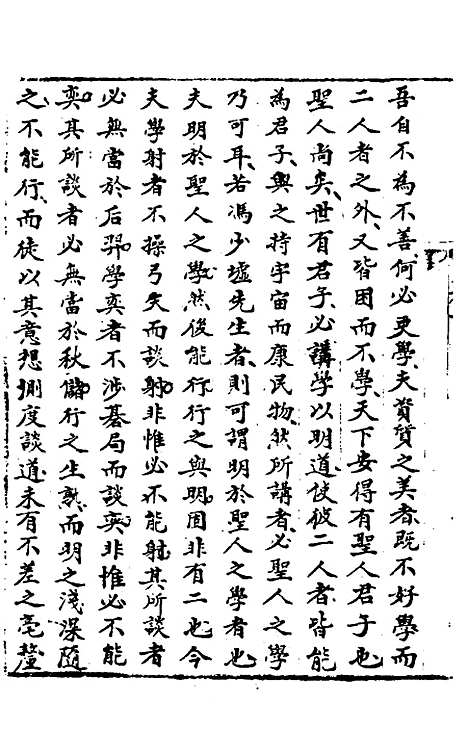 吾自不為不善何必更學夫資質之美者既不好學而
二人者之外又皆困而不學天下安得有聖人君子也
聖人尚矣世有君子必講學以明道使彼二人者皆能
為君子與之持宇宙而康民物然所講者必聖人之學
乃可耳若馮少墟先生者則可謂明於聖人之學者也
夫明於聖人之學然後能行行之與明固非有二也今
夫學射者不操弓矢而談射非惟必不能射其所談者
必無當於后羿學奕者不涉碁局而談奕非惟必不能
奕其所談者必無當於秋儲行之生熟而明之淺深隨
之不能行而徒以其意想惻度談道未有不差之毫釐